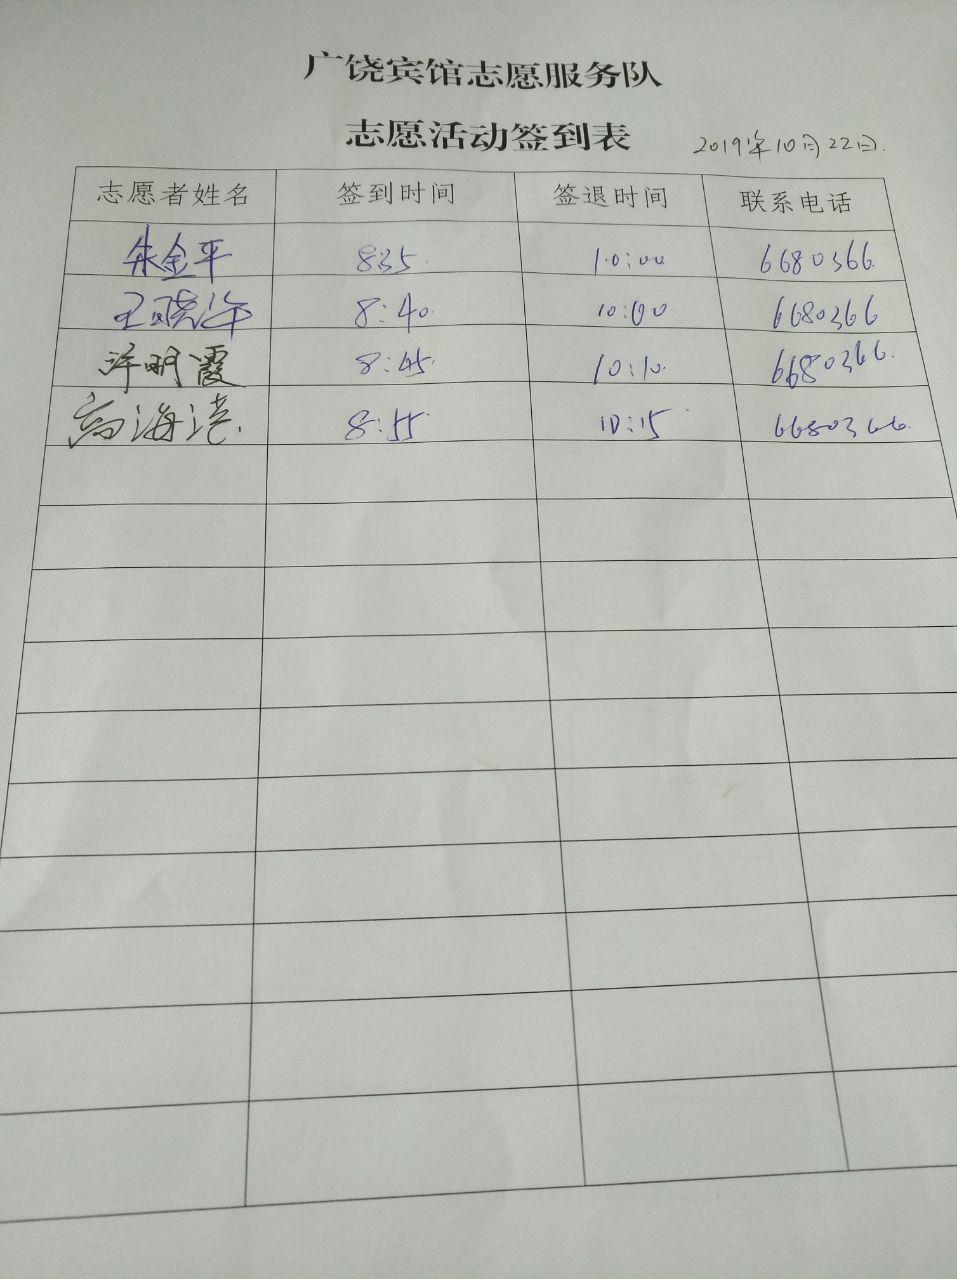 广饶宾馆志愿服务队
志愿活动签到表 2019年10月22日.
志愿者姓名 签到时间 签退时间 联系电话
朱金平 8:35. 10:00 6680366.
王晓 8:40. 10:00 6680366
许明霞 8:45. 10:10. 6680366.
高海 8:55. 10:15 6680366.